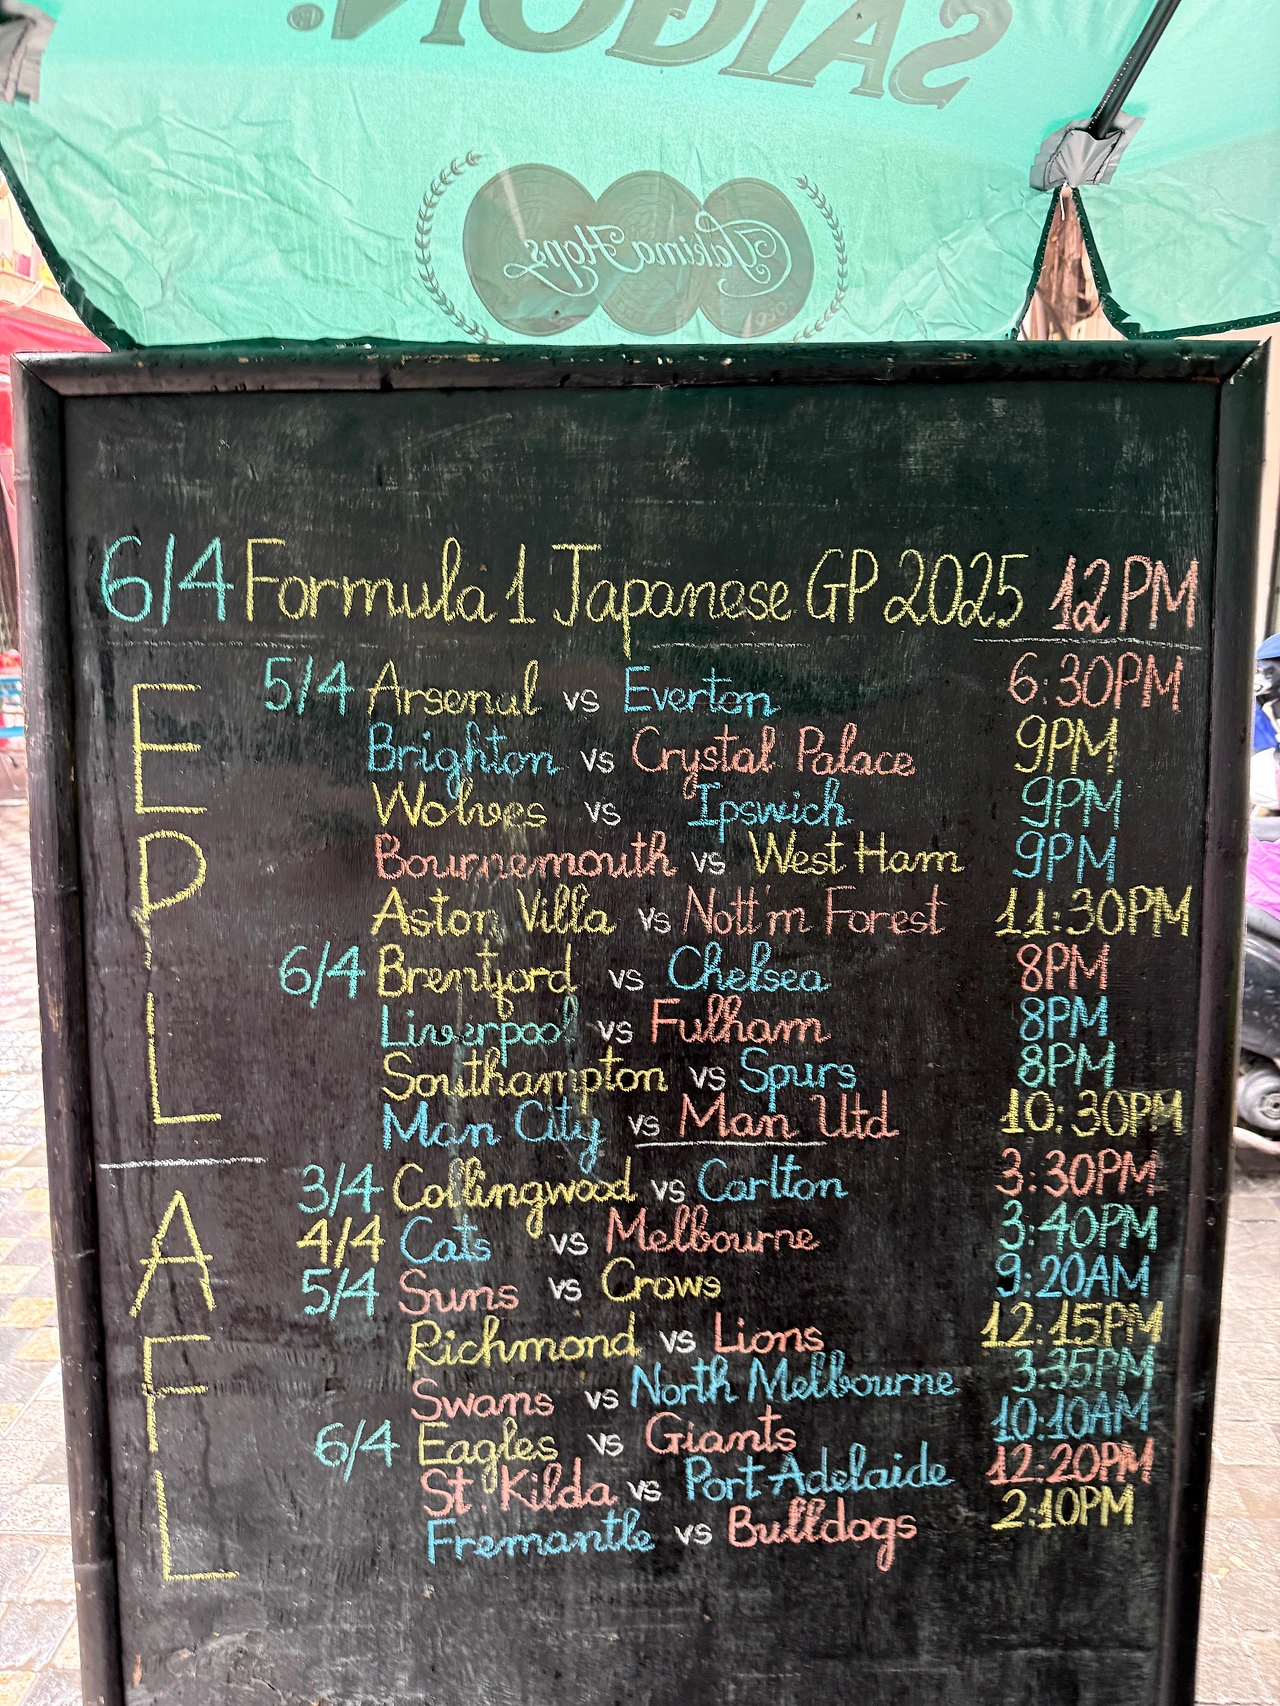 SAIGON.
Yakima Hops
6/4 Formula 1 Japanese GP 2025 12PM
EPL
5/4 Arsenal vs Everton 6:30PM
Brighton vs Crystal Palace 9PM
Wolves vs Ipswich 9PM
Bournemouth vs West Ham 9PM
Aston Villa vs Nott'm Forest 11:30PM
6/4 Brentford vs Chelsea 8PM
Liverpool vs Fulham 8PM
Southampton vs Spurs 8PM
Man City vs Man Utd 10:30PM
AFL
3/4 Collingwood vs Carlton 3:30PM
4/4 Cats vs Melbourne 3:40PM
5/4 Suns vs Crows 9:20AM
Richmond vs Lions 12:15PM
Swans vs North Melbourne 3:35PM
6/4 Eagles vs Giants 10:10AM
St. Kilda vs Port Adelaide 12:20PM
Fremantle vs Bulldogs 2:10PM